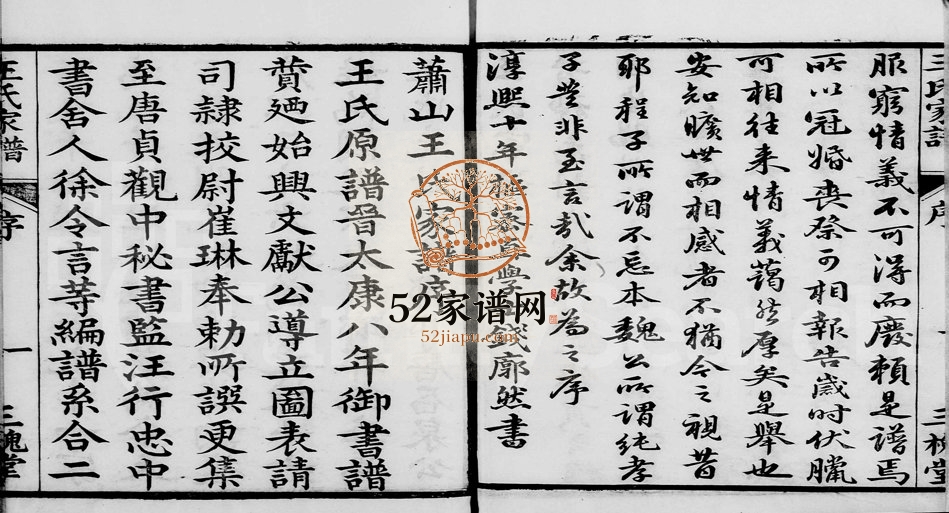 王氏家譜 序 三槐堂
服窮情義不可得而廢賴是譜焉
所以冠婚喪祭可相報告歲時伏臘
可相往來情義藹然厚矣是舉也
安知曠世而相感者不猶今之視昔
耶程子所謂不忘本魏公所謂純孝
子豈非至言哉余故為之序
淳熙十年學士錢廓然書
蕭山王氏家譜序
王氏原譜晉太康八年御書譜
贊廼始興文獻公導立圖表請
司隸挍尉崔琳奉勅所譔更集
至唐貞觀中秘書監汪行忠中
書舍人徐令言等編譜系合二
王氏家譜 序 一 三槐堂
52家谱网
52jiapu.com